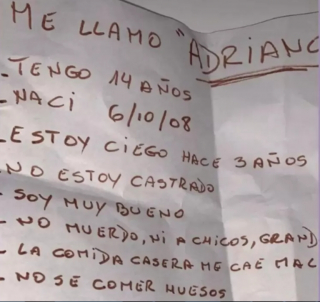 ME LLAMO "ADRIANO
- TENGO 14 AÑOS
- NACI 6/10/08
- ESTOY CIEGO HACE 3 AÑOS
- NO ESTOY CASTRADO
- SOY MUY BUENO
- NO MUERDO, NI A CHICOS, GRAND
- LA COMIDA CASERA ME CAE MAL
- NO SE COMER HUESOS